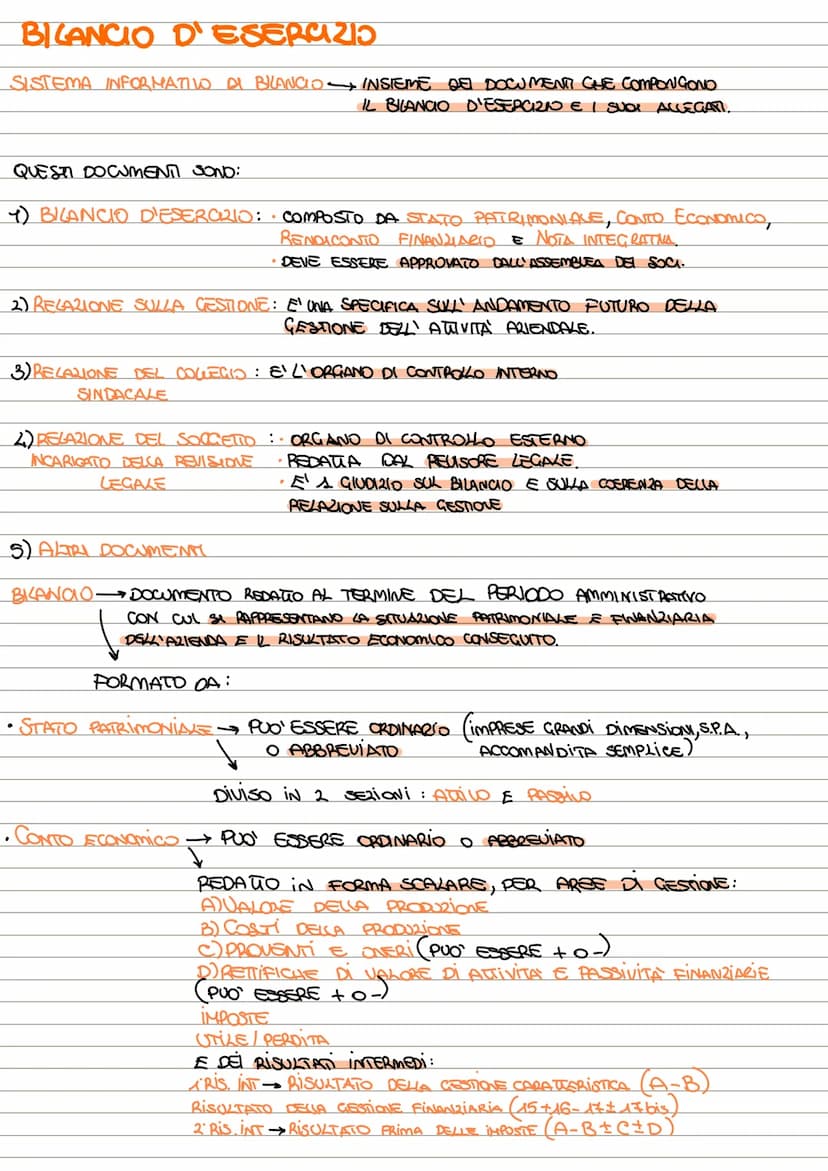 BILANCIO D'ESERCIZIO
SISTEMA INFORMATIVO DI BILANCIO → INSIEME DEI DOCUMENTI CHE COMPONGONO
IL BILANCIO D'ESERCIZIO E I SUOI ALLEGATI.
QUESTI DOCUMENTI SONO:
1) BILANCIO D'ESERCIZIO: • COMPOSTO DA STATO PATRIMONIALE, CONTO ECONOMICO,
RENDICONTO FINANZIARIO E NOTA INTEGRATIVA.
• DEVE ESSERE APPROVATO DALL'ASSEMBLEA DEI SOCI.
2) RELAZIONE SULLA GESTIONE: E' UNA SPECIFICA SULL' ANDAMENTO FUTURO DELLA
GESTIONE DELL' ATTIVITA' AZIENDALE.
3) RELAZIONE DEL COLLEGIO : E' L'ORGANO DI CONTROLLO INTERNO
SINDACALE
4) RELAZIONE DEL SOGGETTO : • ORGANO DI CONTROLLO ESTERNO
INCARICATO DELLA REVISIONE • REDATTA DAL REVISORE LEGALE.
LEGALE • E' 1 GIUDIZIO SUL BILANCIO E SULLA COERENZA DELLA
RELAZIONE SULLA GESTIONE
5) ALTRI DOCUMENTI
BILANCIO → DOCUMENTO REDATTO AL TERMINE DEL PERIODO AMMINISTRATIVO
CON CUI SI RAPPRESENTANO LA SITUAZIONE PATRIMONIALE E FINANZIARIA
DELL'AZIENDA E IL RISULTATO ECONOMICO CONSEGUITO.
FORMATO DA:
• STATO PATRIMONIALE → PUO' ESSERE ORDINARIO (IMPRESE GRANDI DIMENSIONI, S.P.A.,
O ABBREVIATO ACCOMANDITA SEMPLICE)
DIVISO IN 2 SEZIONI: ATTIVO E PASSIVO
• CONTO ECONOMICO → PUO' ESSERE ORDINARIO O ABBREVIATO
REDATTO IN FORMA SCALARE, PER AREE DI GESTIONE:
A) VALORE DELLA PRODUZIONE
B) COSTI DELLA PRODUZIONE
C) PROVENTI E ONERI (PUO' ESSERE + O -)
D) RETTIFICHE DI VALORE DI ATTIVITA' E PASSIVITA' FINANZIARIE
(PUO' ESSERE + O -)
IMPOSTE
UTILE / PERDITA
E DEI RISULTATI INTERMEDI:
1° RIS. INT → RISULTATO DELLA GESTIONE CARATTERISTICA (A-B)
RISULTATO DELLA GESTIONE FINANZIARIA (15+16-17±17bis)
2° RIS. INT → RISULTATO PRIMA DELLE IMPOSTE (A-B±C±D)